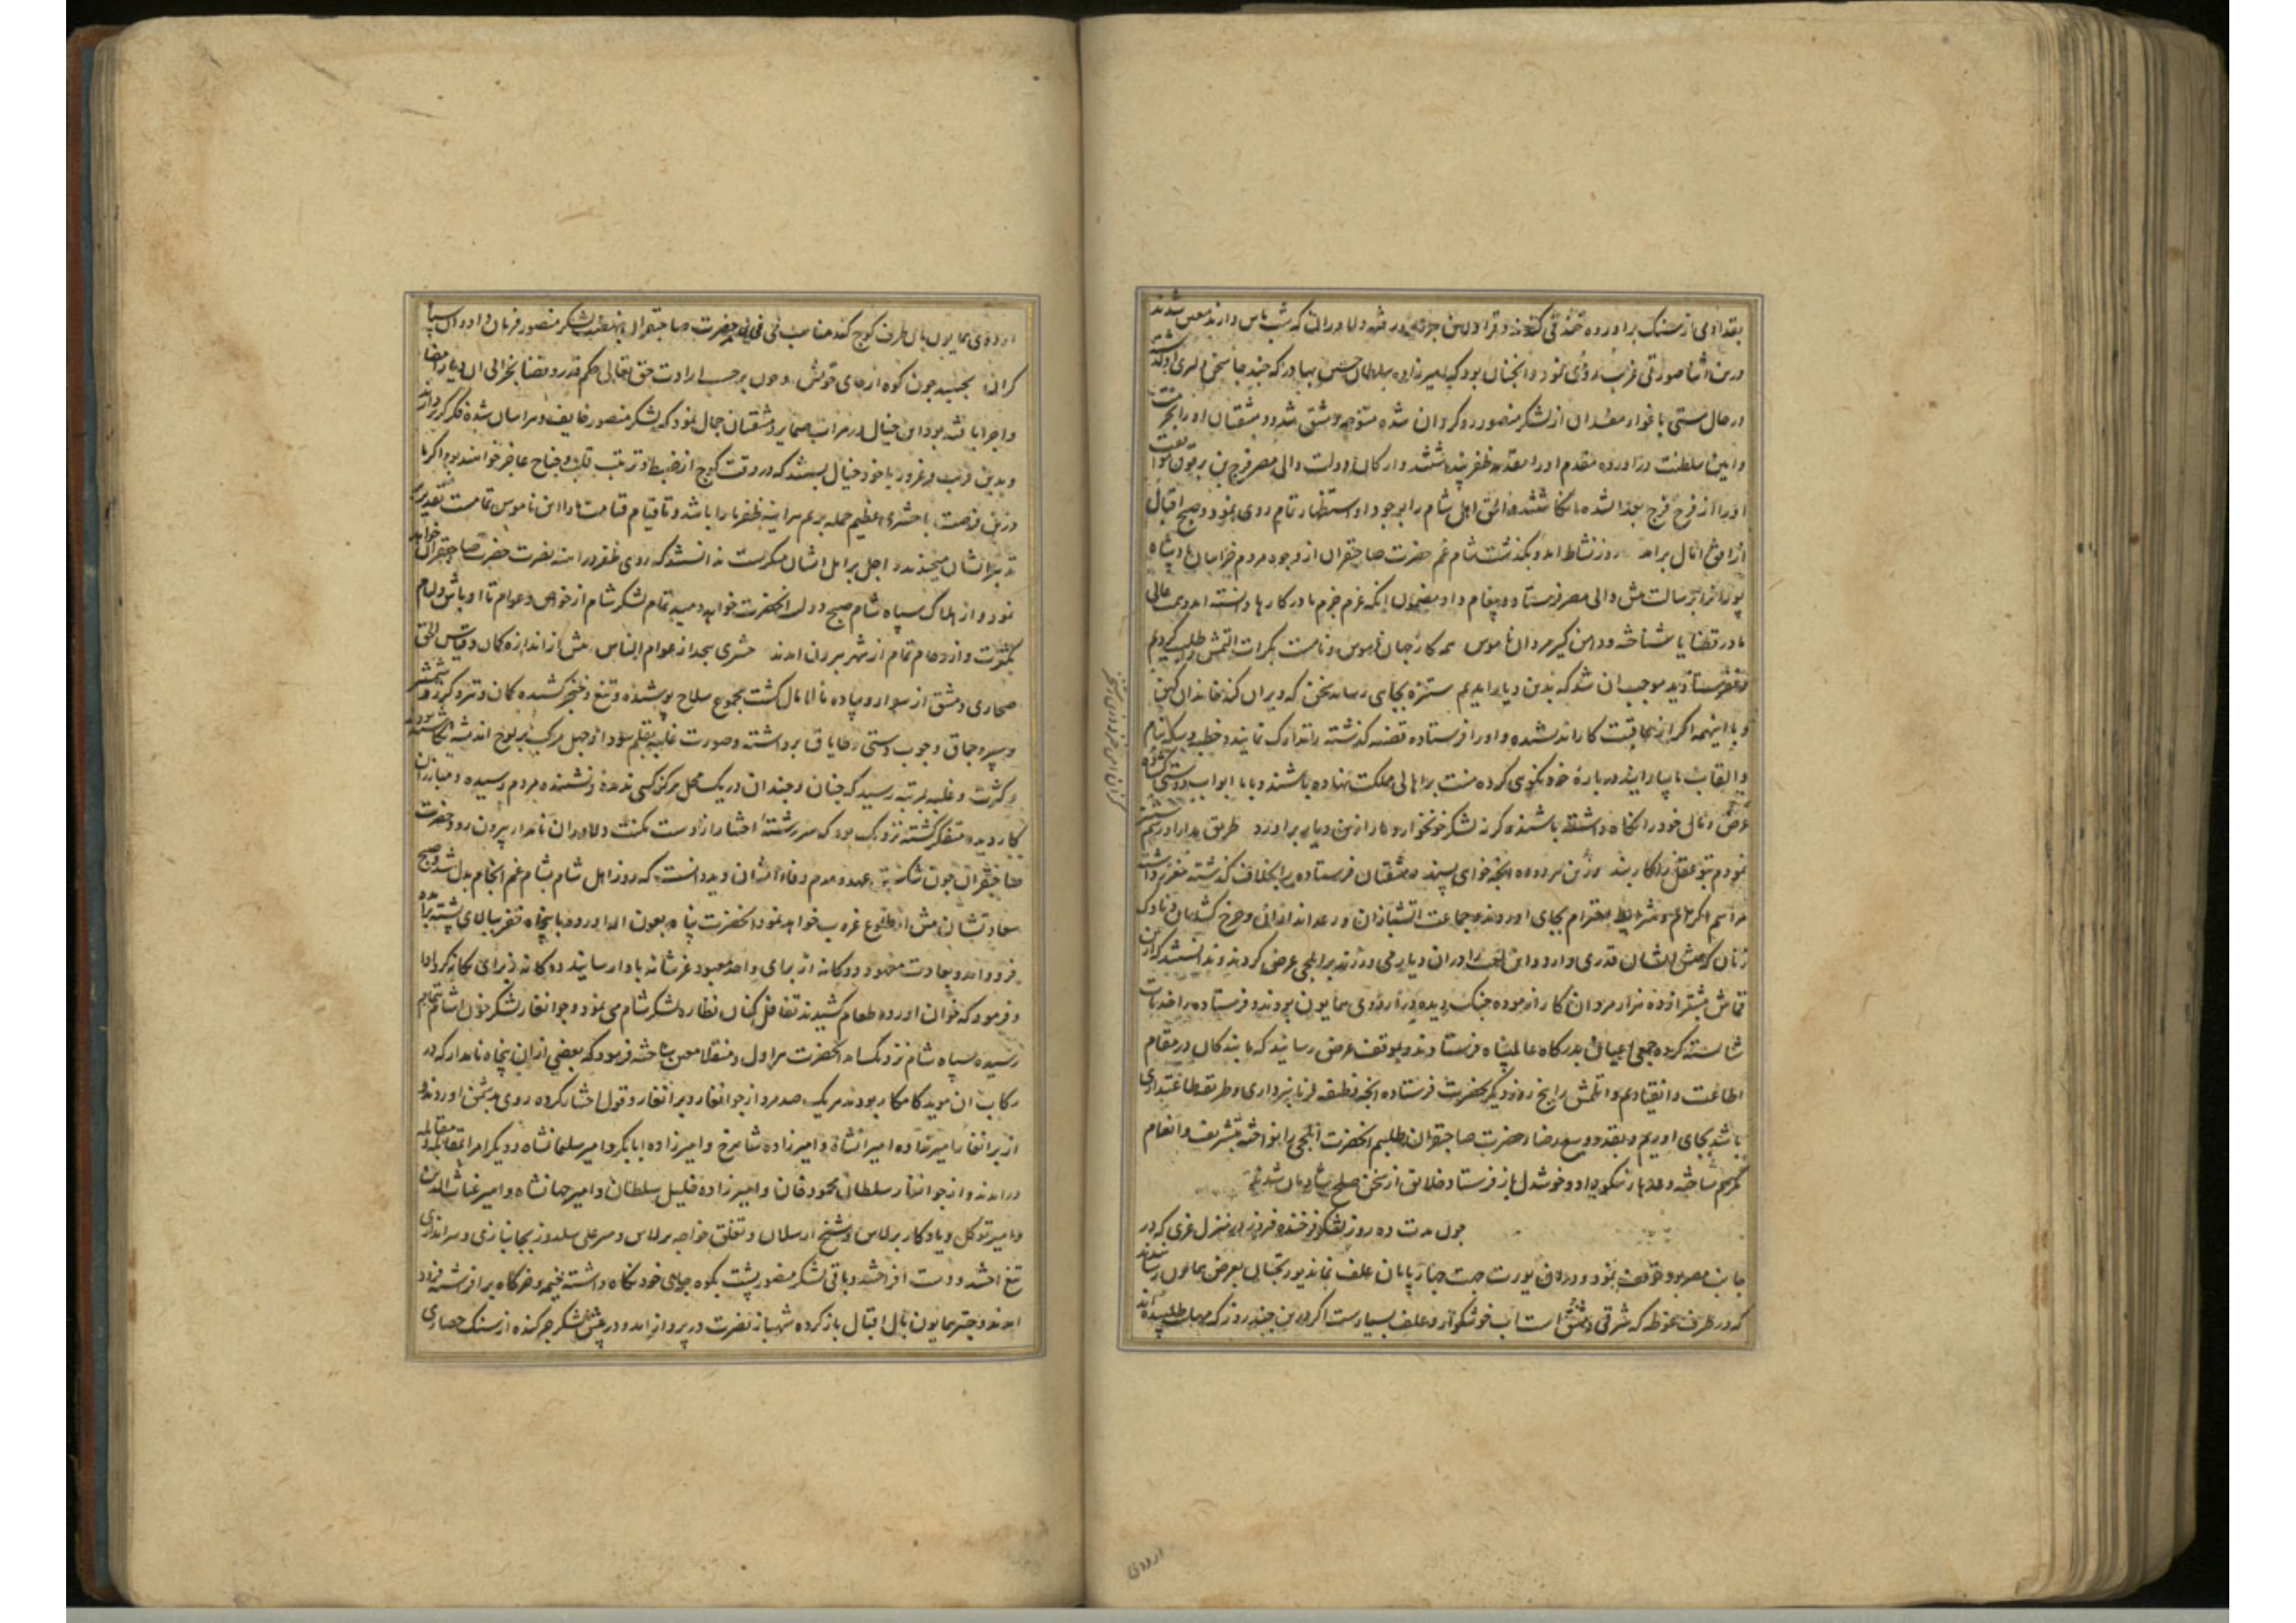 بقد ادمی از سنک براورده خندقی کندند و قراولان
درین اثنا صورتی غریب روی نمود و انجنان بود که امیرزاده سلطان حسین بهادر که
در حال مستی باغوار مفسدان از لشکر منصور رو کردان شده متوجه دمشق شد و دمشقیان او را
و ایین سلطنت در اورده مقدم او را مقدمه ظفر پنداشتند و ارکان دولت والی مصر فرج بن برقوق
از افق امال برامد روز نشاط امد و بکذشت شام غم حضرت صاحبقران از وجود مردم خراسان
برسالت پیش والی مصر فرستاد و پیغام داد مضمون انکه عزم جزم ما در کارها دانسته اند و همت عالی
ما در قضایا شناخته و دامن کیر مردان ناموس همه کار جهان ناموس و نامست بکرات اتلمش را طلب کردیم
و نفرستادید موجب ان شد که بدین دیار امدیم ستیزه بجایی رساند سخن که ویران کند خاندان کهن
و با اینهمه اکر از عاقبت کار اندیشیده و او را فرستاده قضیه کذشته را تدارک نمایند و خطبه و سکه بنام
و القاب ما بیارایند در باره خود نکویی کرده منت بر اهالی مملکت نهاده باشند و با ما ابواب دوستی
عرض و مال خود را نکاه داشته باشند و کرنه لشکر خونخوار دمار ازین دیار براورد طریق مدارا و رسم
نمودم تو عقل را کار بند ازین هر دو ره انجه خواهی پسند دمشقیان فرستاده را بخلاف کذشته
مراسم اکرام و شرایط احترام بجای اوردند و جماعت اتشبازان و رعد اندازان و چرخ
زنان که پیش ایشان قدری دارد و این لعب را دران دیار می ورزند بر ایلچی عرض کردند و ندانستند که
بیشتر از ده هزار مردان کار ازموده جنک دیده در اردوی همایون بودند و فرستاده را خدمات
شایسته کرده جمعی اعیان بدرکاه عالمپناه فرستادند و بموقف عرض رسانیدند که ما بندکان در مقام
اطاعت و انقیادیم و اتلمش را پنج روز دیکر بحضرت فرستاده انجه وظیفه فرمانبرداری و طریقه طاعتداری
باشد بجای اوریم و بقدر وسع رضاء حضرت صاحبقران طلبیم انحضرت ایلچی را بنواخت و بتشریف و انعام
مکرم ساخته وعدهاء نیکو داد و خوشدل باز فرستاد و خلایق از سخن صلح شادمان شدند
چون مدت ده روز لشکر فرخنده فر در ان منزل غربی که در
جانب مصر بود توقف نمود و دران یورت جهت چهارپایان علف نماند یورتجیان بعرض همایون رسانیدند
که در طرف غوطه که شرقی دمشق است اب خوشکوار و علف بسیارست اکر درین چند روز که مهلت طلبیده اند
اردوی
اردوی همایون بان طرف کوچ کند مناسب می نماید حضرت صاحبقران بنهضت لشکر منصور فرمان داد و ان سپاه
کران بجنبید چون کوه از جای خویش و چون بر حسب ارادت حق تعالی حکم قدر و قضا بخرابی ان دیار
و اجرا یافته بود این خیال در مرات ضمایر دمشقیان جمال نمود که لشکر منصور خایف و هراسان شده فکر کریز دارند
و بدین فریب و غرور با خود خیال بستند که در وقت کوچ از ضبط و ترتیب قلب و جناح عاجز خواهند بود اکر ما
درین فرصت با حشری عظیم حمله بریم هراینه ظفر ما را باشد و تا قیام قیامت ما را این ناموس تمامست تقدیر بر
تدبیر ایشان میخندید و اجل بر امل ایشان میکریست ندانستند که روی ظفر در اینه نصرت حضرت صاحبقران خواهد
نمود و از هلاک سپاه شام صبح دولت انحضرت خواهد دمید تمام لشکر شام از خواص و عوام تا اوباش و لیام
بکثرت و ازدحام تمام از شهر بیرون امدند حشری بیحد از عوام الناس بیش از اندازه کمان و قیاس الحق
صحاری دمشق از سوار و پیاده مالامال کشت مجموع سلاح پوشیده و تیغ و خنجر کشیده کمان و تیر و کرز و شمشیر
و سپر و چماق و چوب دستی بر داشته و صورت غلبه بقلم سودا از جهل مرکب بر لوح اندیشه نکاشته
و کثرت و غلبه بمرتبه رسید که چنان و چندان در یک محل هرکز کسی ندیده و نشنیده مردم رسیده و مبارزان
کار دیده متفکر کشته نزدیک بود که سررشته اختیار از دست مکنت دلاوران نامدار بیرون رود حضرت
صاحبقران چون شکر عهد و عدم وفاء ایشان دید دانست که روز اهل شام بشام غم انجام مبدل شد و صبح
سعادتشان پیش از طلوع غروب خواهد نمود انحضرت پناه بعون اله اورد و با پنجاه نفر ببالای پشته برامده
فرود امد و بعادت معهود دوکانه از برای واحد معبود عز شانه بادا رسانید دوکانه ز برای یکانه کرد ادا
و فرمود که خوان اورده طعام کشیدند تغافل کنان نظاره لشکر شام می نمود و چو انغار لشکر خون اشام تمام
رسیده سپاه شام نزدیکتر امد انحضرت هراول و منقلا معین ساخته فرمود که بعضی ازان پنجاه نامدار که در
رکاب ان موید کامکار بودند هر یک صد مرد از جوانغار و برانغار و قول اختیار کرده روی بدشمن اوردند و
از برانغار امیرزاده امیرانشاه و امیرزاده شاهرخ و امیرزاده ابابکر و امیر سلیمانشاه و دیکر امرا بمقاتله
درامدند و از جوانغار سلطان محمود خان و امیرزاده خلیل سلطان و امیر جهانشاه و امیر غیاث الدین
و امیر توکل و یادکار برلاس و شیخ ارسلان و تغلق خواجه برلاس و میر علی سلدوز بجانبازی و سراندازی
تیغ اخته و دست افراخته و باقی لشکر منصور پشت بکوه جبای خود نکاه داشته خیمه و خرکاه برافراشته فرود
امدند و چتر همایون بال اقبال باز کرده شهباز نصرت در پرواز امد و در پیش لشکر جر کنده از سنک حصاری